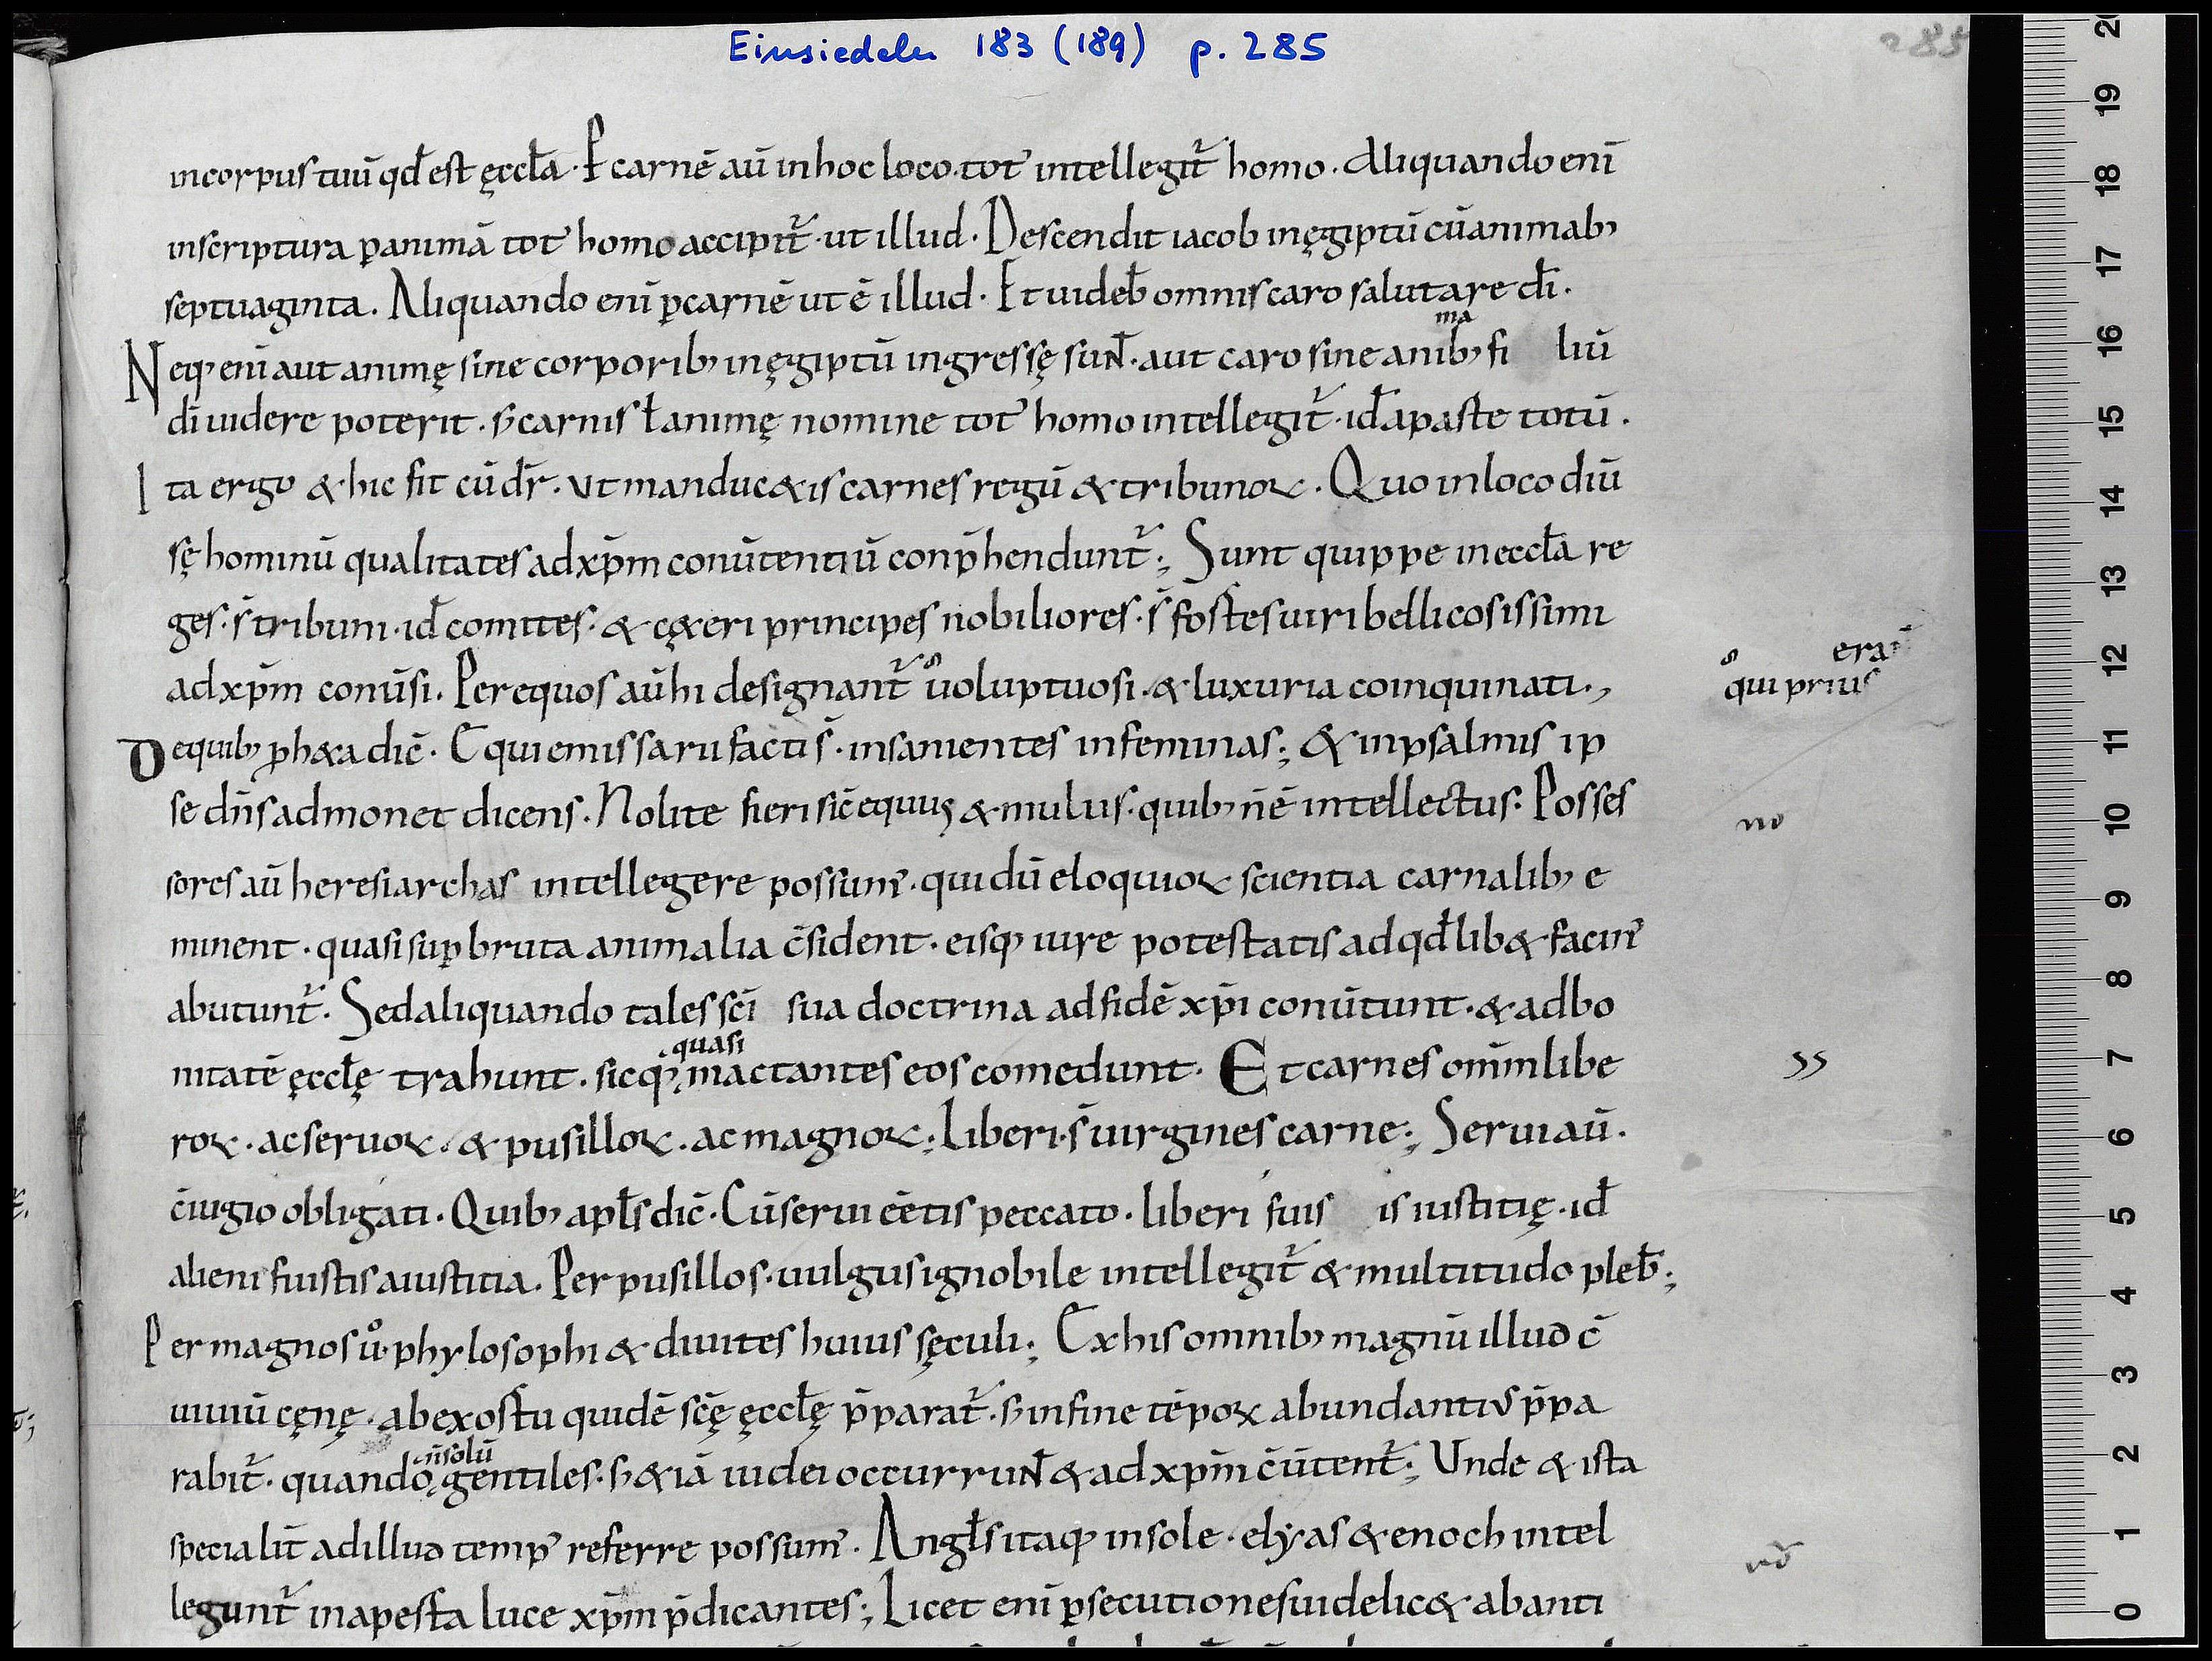 Einsiedeln 183 (189) p. 285
285
incorpus tuū qđ est ęccła · P carnē aū inhoc loco · tot᾽ intellegit᷑ homo · Aliquando enī
inscriptura ꝑanimā tot᾽ homo accipit᷑ · ut illud · Descendit iacob inęgiptū cūanimab;
septuaginta . Aliquando enī ꝑcarnē ut ē illud · Et uideƀ omnis caro salutare dī .
Neq; enī aut animę sine corporib; inęgiptū ingressę sunt̄ · aut caro sine anib; fi liū
ma
dī uidere poterit . s; carnis ł animę nomine tot᾽ homo intellegit᷑ · iđ aparte totū .
Ita ergo & hic fit cū dr̄ . ut manduc&is carnes regū & tribunoꝝ . Quo inloco diū
sę hominū qualitates adxp̄m conūtentiū conp̄hendunt᷑; Sunt quippe ineccła re
ges · s̄ tribuni · iđ comites · & cę&eri principes nobiliores · s̄ fortes uiri bellicosissimi
adxp̄m conūsi . Per equos aū hi designant᷑ uoluptuosi · & luxuria coinquinati ·,
qui prius erant̄
Dequib; ꝓph&a dic̄ · Equi emissarii facti s̄ · insanientes infeminas; & inpsalmis ip
se dn̄s admonet dicens . Nolite fieri sic̄ equus & mulus · quib; n̄ē intellectus : Posses
no
sores aū heresiarchas intellegere possum᾽ · qui dū eloquioꝝ scientia carnalib; e
minent · quasi suꝑ bruta animalia c̄sident · eisq; iure potestatis ad qđlib& facin᾽
abutunt᷑ . Sed aliquando tales sc̄i sua doctrina ad fidē xp̄i conūtunt · & ad bo
nitatē ęccłę trahunt . sicq; mactantes eos comedunt · Et carnes omīm libe
quasi
roꝝ . ac seruoꝝ . & pusilloꝝ . ac magnoꝝ; Liberi · s̄ uirgines carne; Serui aū .
c̄iugio obligati . Quib; apłs dic̄ . Cū serui eētis peccato . liberi fuis is iustitię · iđ
alieni fuistis aiustitia . Per pusillos · uulgus ignobile intellegit᷑ & multitudo pleƀ;
Per magnos ů · phylosophi & diuites huius sęculi; Ex his omnib; magnū illud c̄
uiuiū cęnę · ab exortu quidē sc̄ę ęccłę p̄parat᷑ . s; in fine tēpoꝝ abundanti᾽ p̄pa
rabit᷑ · quando gentiles · s; &iā iudei occurrunt̄ & ad xp̄m c̄ūtent᷑; Unde & ista
n̄solū
specialit̄ ad illud temp᾽ referre possum᾽ . Angłs itaq; in sole · elyas & enoch intel
legunt᷑ in aperta luce xp̄m p̄dicantes; Licet enī ꝑsecutiones uidelic& ab anti
20
19
18
17
16
15
14
13
12
11
10
9
8
7
6
5
4
3
2
1
0